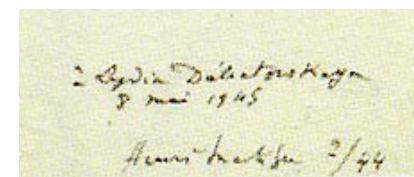 à Lydia Délectorskaya
8 mai 1945
Henri Matisse 2/44